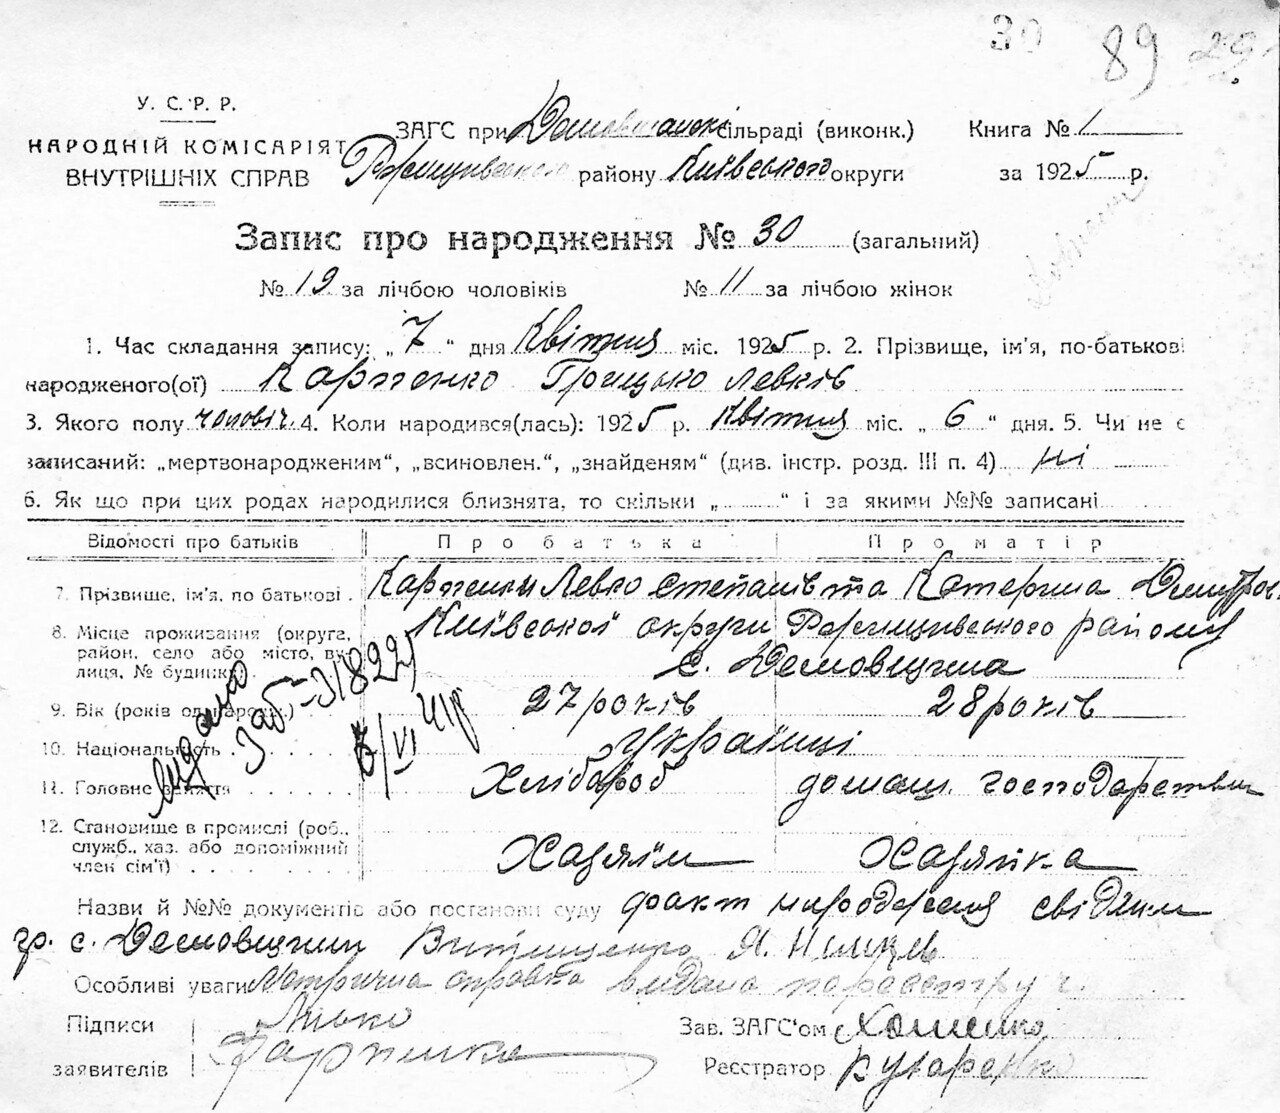 30 89 29
У. С. Р. Р.
НАРОДНІЙ КОМІСАРІЯТ
ВНУТРІШНІХ СПРАВ
ЗАГС при Демовщанскі сільраді (виконк.) Книга № 1
Ржищивського району Київського округи за 1925 р.
Запис про народження № 30 (загальний)
№ 19 за лічбою чоловіків № 11 за лічбою жінок
1. Час складання запису: „ 7 “ дня Квітня міс. 1925 р. 2. Прізвище, ім’я, по-батькові
народженого(ої) Карпенко Грицько Левків
3. Якого полу чоловіч. 4. Коли народився(лась): 1925 р. Квітня міс. „ 6 “ дня. 5. Чи не є
записаний: „мертвонародженим“, „всиновлен.“, „знайденям“ (див. інстр. розд. III п. 4) ні
6. Як що при цих родах народилися близнята, то скільки „ “ і за якими №№ записані
Відомості про батьків Про батька Про матір
7. Прізвище, ім’я, по батькові Карпенки Левко Степанів та Катерина Дмитров.
8. Місце проживання (округа, район, село або місто, вулиця, № будинку) Київської округи Ржищивського району
с. Демовщина
9. Вік (років од народж.) 27 років 28 років
10. Національність Українці
11. Головне заняття Хлібороб домаш. господарствам
12. Становище в промислі (роб., служб., хаз. або допоміжний член сім’ї) Хазяїн Хазяйка
видано
Заб-318229
Назви й №№ документів або постанови суду факт народження свідчим
гр. с. Демовщини
Особливі уваги Метрична справка видана по реестру ч.
Підписи Левко
заявителів Карпенко
Зав. ЗАГС’ом Хоменко
Реєстратор Кухаренко